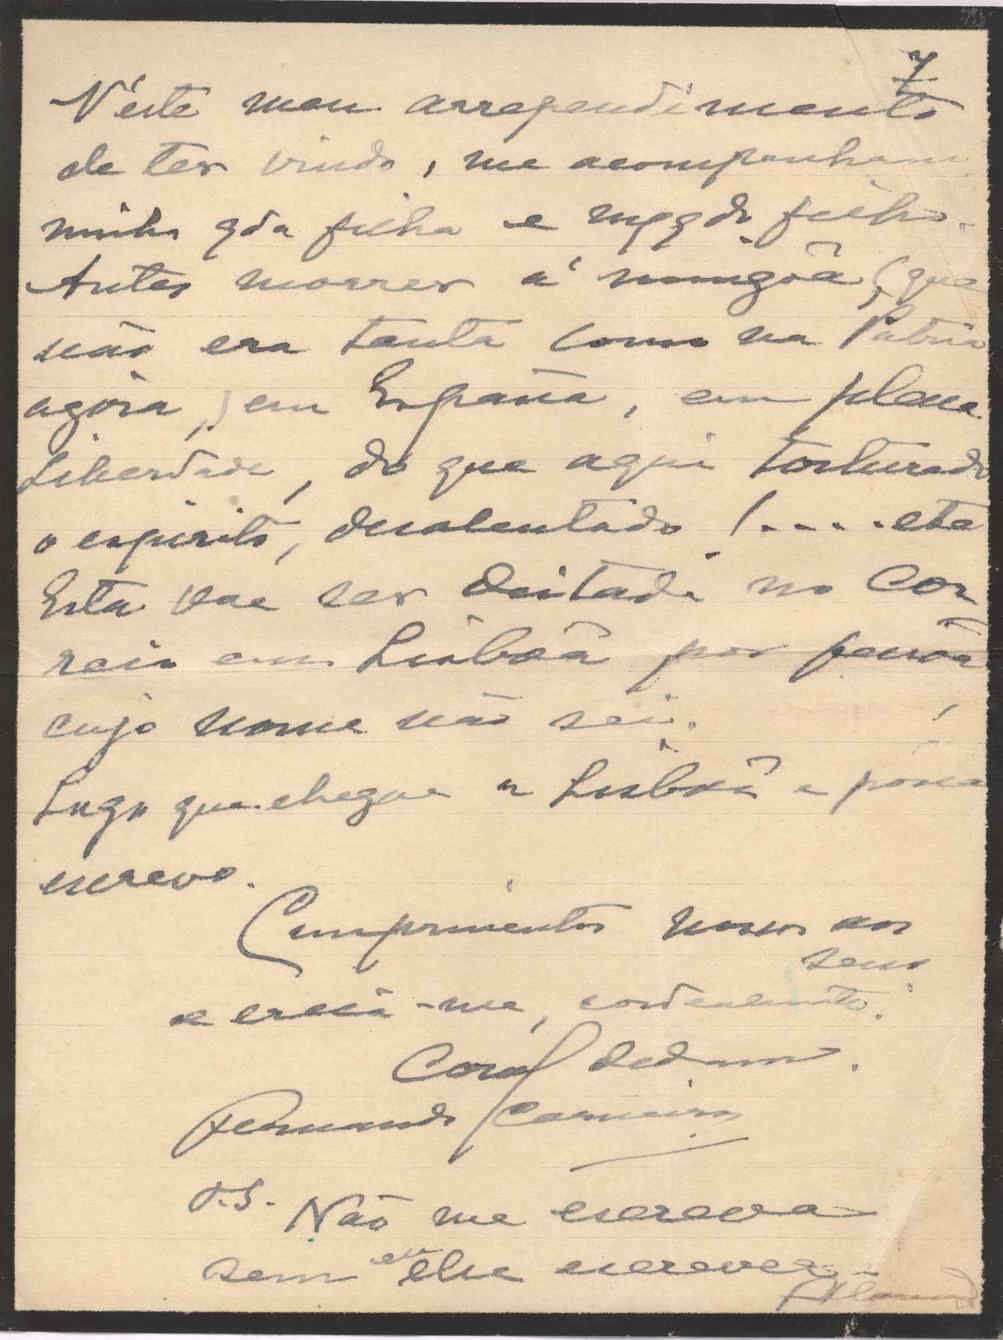 7
N'éste meu arrependimento
de ter vindo, me acompanham
minha qda filha e filho.
Antes morrer á mingoâ, (que
não era tanta como na Pátria
agóra,) em España, em plena
Liberdade, do que aqui torturado
o espirito, desalentado !.... etc
Esta vae ser deitada no Cor
reio em Lisbôa por pessôa
cujo nome não sei.
Logo que chegue a Lisbôa e póssa
escrevo.
Cumprimentos nossos aos
seus
e creia-me, cordealmente.
Coral dedmo.
Fernando Carneiro
P.S. Não me escreva
sem eu lhe escrever.